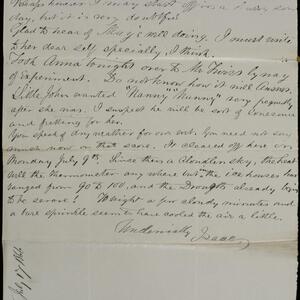 Perhaps however I may start off on a
day, but it is very doubtful.
Glad to hear of May's well doing. I must write
to her dear self, specially, I think.
Took Anna tonight over to Mr by way
of experiment. Do not know how it will answer.
Little John wanted "Nanny" very frequently
after she was. I suspect he will be sort of lonesome
and fretting for her.
You speak of dry weather for our visit. You need not say
much now on that score. It cleared off here on
Monday July 9th. Since then a cloudless sky, the heat
will the thermometer any where but in the ice houses has
ranged from 90 to 100, and the Drought already begins
to be severe! Tonight a few cloudy minutes and
a bare sprinkle seem to have cooled the air a little.
Tenderly Isaac
July 17